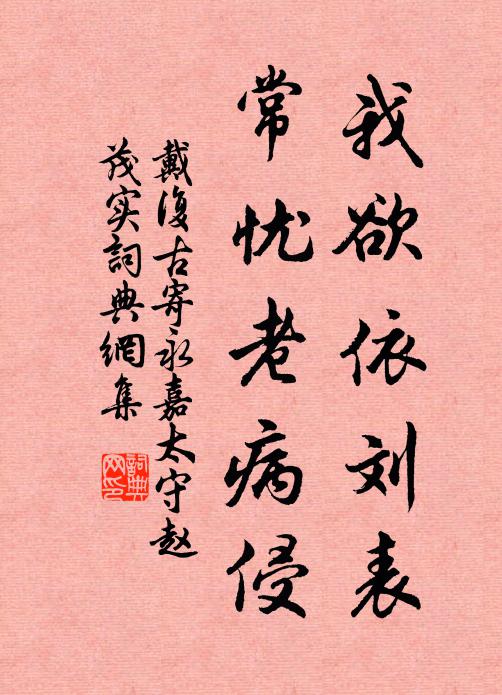 我欲依刘表
常忧老病侵
戴復古寄永嘉太守赵
茂实詞典網集
詞典网印